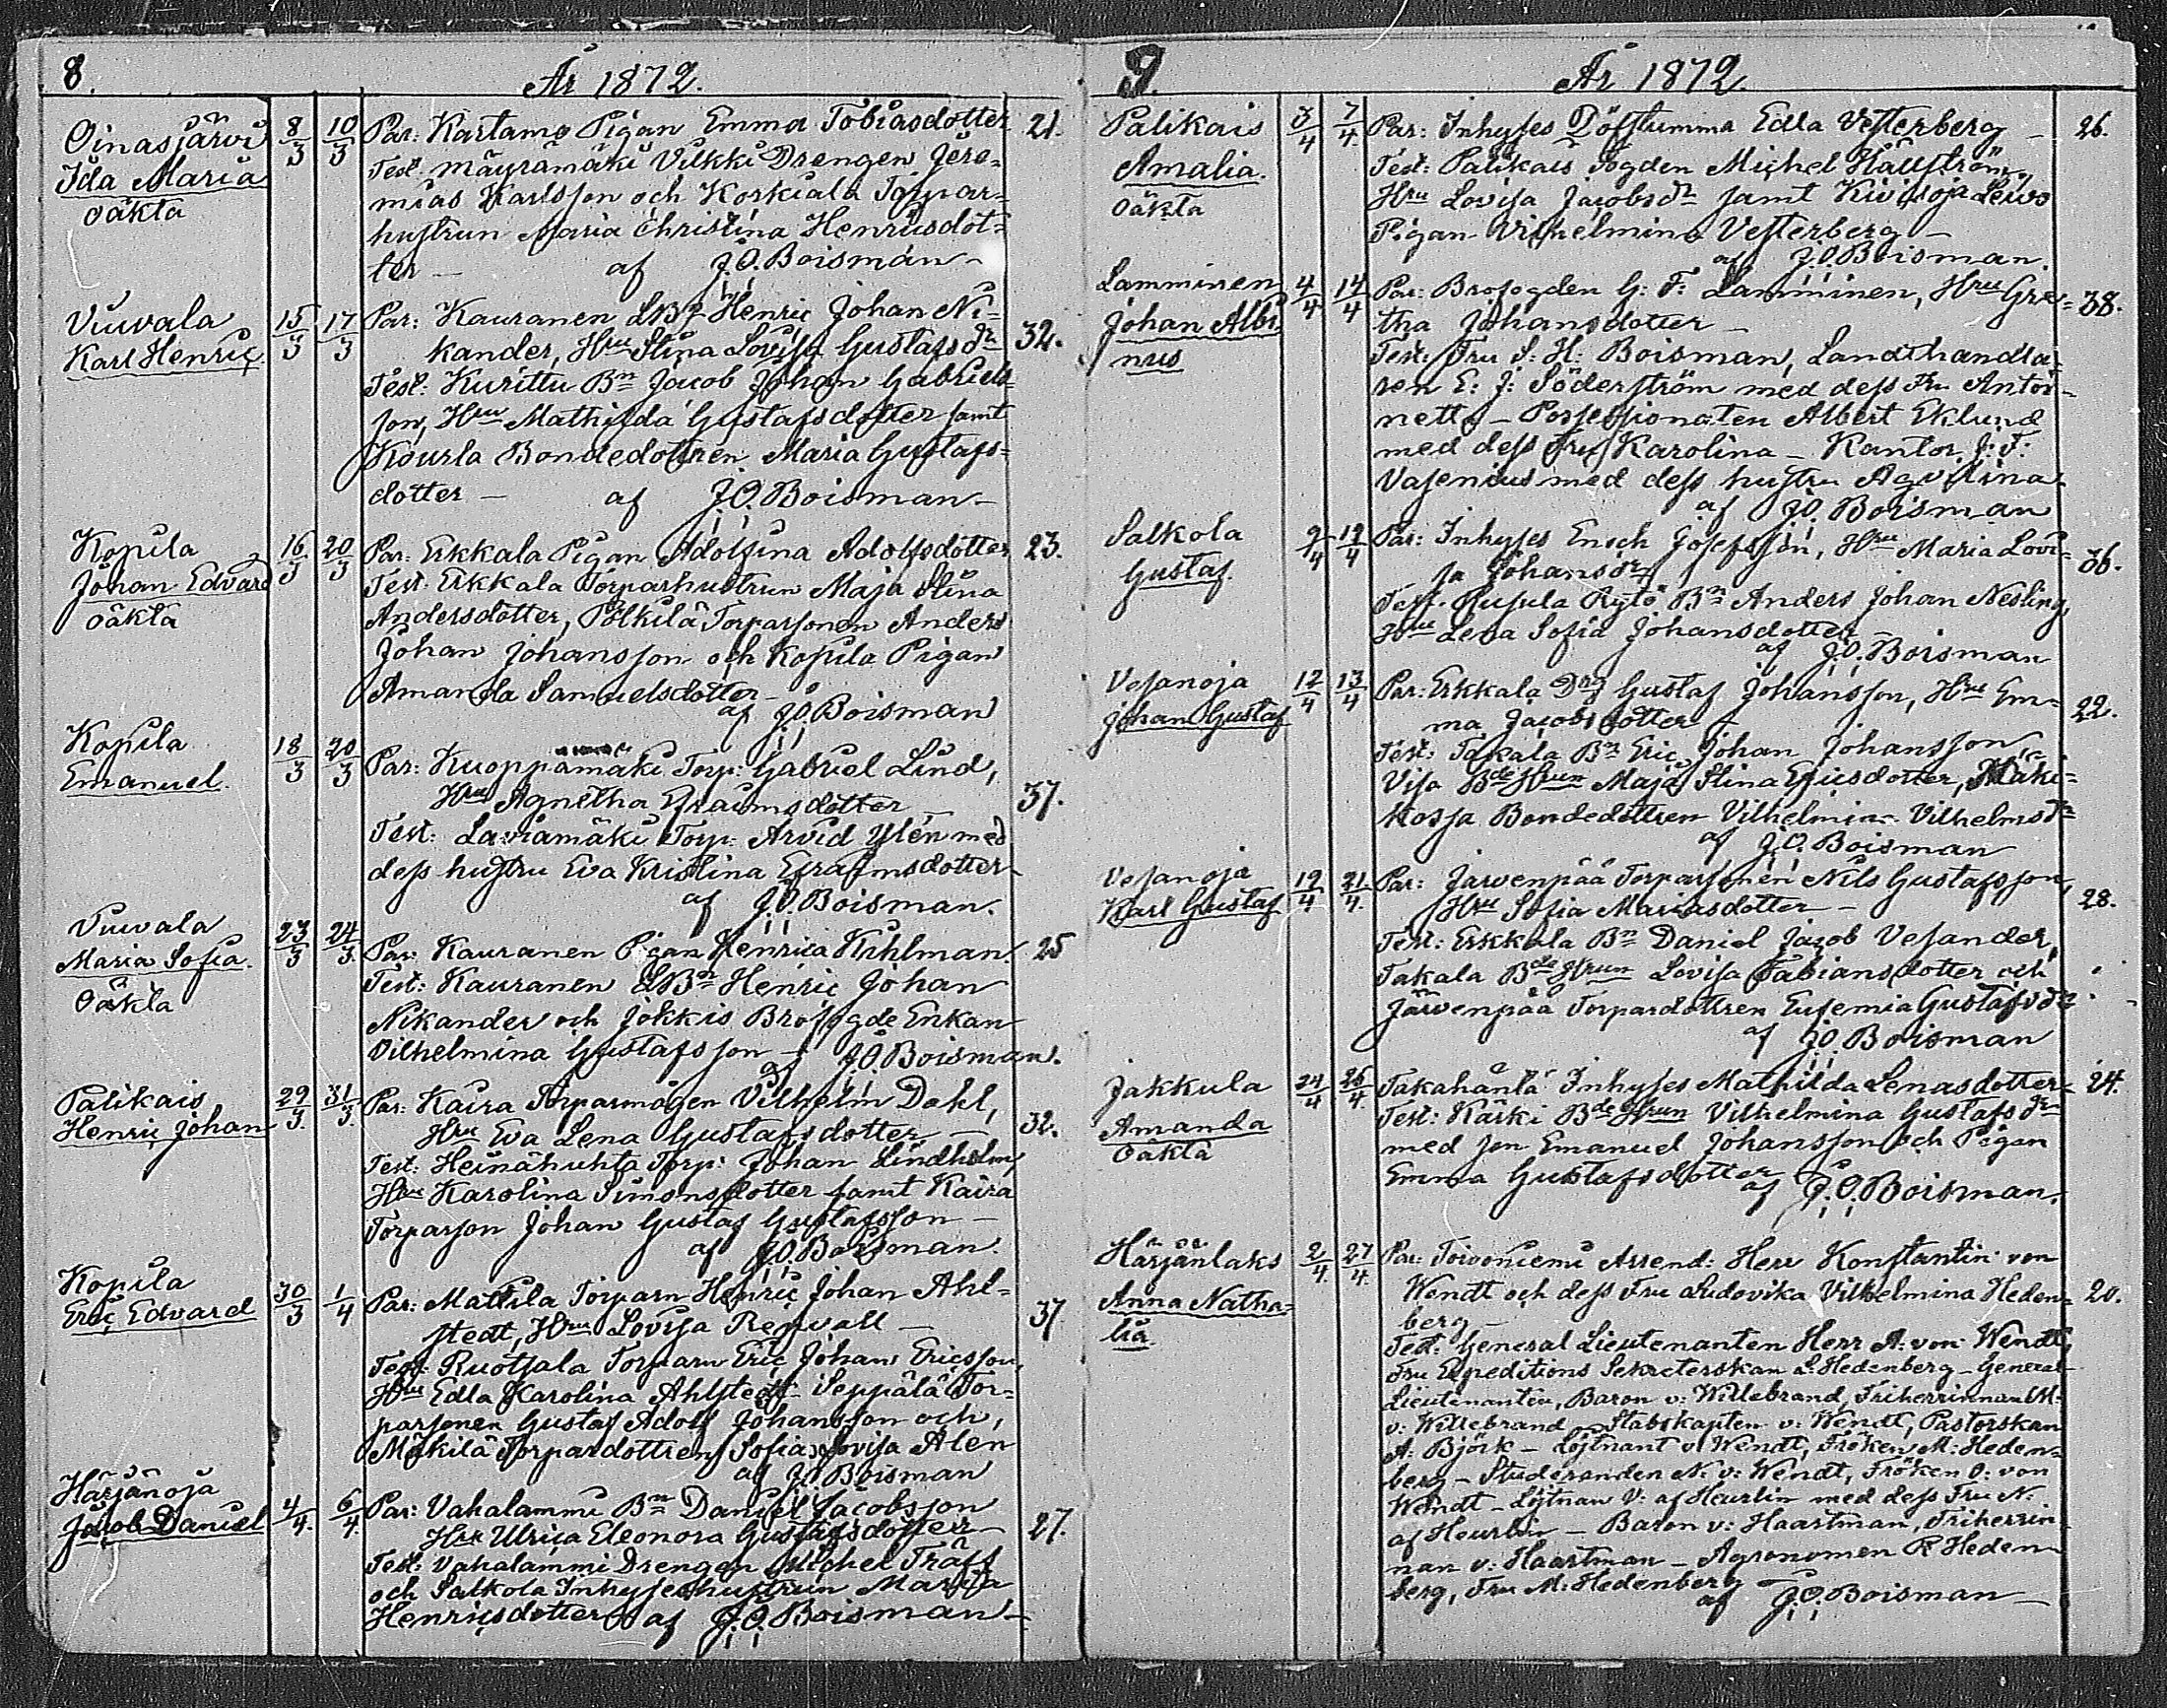 8.
År 1872.
Oinasjärvi 8/3 10/3 Par: Kartamo Pigan Emma Tobiasdotter 21.
Ida Maria Test. Mäyrämäki Vilkki Drengen Jere-
oäkta mias Karlsson och Korkiala Torpar-
hustrun Maria Christina Henricsdot-
ter – af J.O. Boisman –
Vuivala 15/3 17/3 Par: Kauranen LBn Henric Johan Ni-
Karl Henric kander, Hru Stina Lovisa Gustafsdr 32.
Test: Kurittu Bn Jacob Johan Gabriels-
son, Hru Mathilda Gustafsdotter samt
Kourla Bondedottren Maria Gustafs-
dotter – af J.O. Boisman –
Kopila 16/3 20/3 Par: Erkkala Pigan Adolfina Adolfsdotter 23.
Johan Edvard Test. Erkkala Torparhustrun Maja Stina
oäkta Andersdotter, Pölkilä Torparsonen Anders
Johan Johansson och Kopila Pigan
Amanda Samuelsdotter –
af J.O. Boisman
Kopila 18/3 20/3 Par: Kuoppamäki Torp: Gabriel Lind,
Emanuel. Hru Agnetha Efraimsdotter – 37.
Test: Laviamäki Torp: Arvid Ylén med
dess hustru Eva Kristina Efraimsdotter
af J.O. Boisman.
Vuivala 23/3 24/3 Par: Kauranen Pigan Henrica Kihlman 25
Maria Sofia. Test: Kauranen LBn Henric Johan
Oäkta Nikander och Jokkis Brofogde Enkan
Vilhelmina Gustafsson –
af J.O. Boisman.
Palikais 29/3 31/3 Par: Kaira Torparmågen Vilhelm Dahl,
Henric Johan Hru Eva Lena Gustafsdotter – 32.
Test: Heinähuhta Torp: Johan Lindholm,
Hru Karolina Simonsdotter samt Kaira
Torparson Johan Gustaf Gustafsson –
af J.O. Boisman.
Kopila 30/3 1/4 Par: Mattila Torparn Henric Johan Ahl-
Eric Edvard stedt, Hru Lovisa Renvall – 37
Test: Ruotsala Torparn Eric Johan Ericsson,
Hru Edla Karolina Ahlstedt – Seppälä Tor-
parsonen Gustaf Adolf Johansson och,
Mäkilä Torpardottren Sofia Lovisa Alen
af J.O. Boisman
Härjänoja 4/4 6/4 Par: Vahalammi Bn Daniel Jacobsson
Jacob Daniel Hru Ulrica Eleonora Gustafsdotter – 27.
Test: Vahalammi Drengen Michel Träff
och Salkola Inhyseshustrun Maria
Henricsdotter af J.O. Boisman –
9.
År 1872.
Palikais 3/4 7/4 Par: Inhyses Döfstumma Edla Vesterberg – 26.
Amalia. Test: Palikais Fogden Michel Hällström,
oäkta Hru Lovisa Jacobsdr samt Kivisoja Leivo
Pigan Vilhelmina Vesterberg –
af J.O. Boisman.
Lamminen 4/4 14/4 Par: Brofogden G: F: Lamminen, Hru Gre- 38.
Johan Albi- tha Johansdotter –
nus Test: Fru S: H: Boisman, Landthandla-
ren E: J: Söderström med dess Fru Antoi-
nette – Possessionaten Albert Eklund
med dess Fru Karolina – Kantor J: F:
Vasenius med dess hustru Agvilina.
af J.O. Boisman
Salkola 9/4 12/4 Par: Inhyses Enoch Josefsson, Hru Maria Lovi-
Gustaf. sa Johansdr 36.
Test. Rytö Bn Anders Johan Nesling,
Hru Lena Sofia Johansdotter –
af J.O. Boisman
Vesanoja 12/4 13/4 Par: Erkkala Drg Gustaf Johansson, Hru Em-
Johan Gustaf ma Jacobsdotter – 22.
Test: Takala Bn Eric Johan Johansson
Visa Bde Hrun Maja Stina Ericsdotter, Mäki-
Bondedottren Vilhelmina Vilhelmsdr
af J.O. Boisman
Vesanoja 19/4 21/4 Par: Järvenpää Torparsonen Nils Gustafsson,
Karl Gustaf Hru Sofia Mariasdotter – 28.
Test: Erkkala Bn Daniel Jacob Vesander,
Takala Bde Hrun Lovisa Fabiansdotter och
Järvenpää Torpardottren Eufemia Gustafsdr
af J.O. Boisman
Jakkula 24/4 26/4 Takahänlä Inhyses Mathilda Lenasdotter 24.
Amanda Test: Kärki Bde Hrun Vilhelmina Gustafsdr
oäkta med son Emanuel Johansson och Pigan
Emma Gustafsdotter
af J.O. Boisman.
Härjänlaks 2/4 27/4 Par: Toivoniemi Arrend: Herr Konstantin von
Anna Natha- Wendt och dess Fru Ludovika Vilhelmina Heden- 20.
lia berg –
Test: General Lieutenanten Herr A: von Wendt,
Fru Expeditions Sekreterskan L. Hedenberg – General
Lieutenanten, Baron v: Willebrand, Friherrinnan M:
v: Willebrand – Stabskapten v: Wendt, Pastorskan
A: Björk – Löjtnant v: Wendt, Fröken M: Heden-
berg – Studeranden N: v: Wendt, Fröken O: von
Wendt – Löjtnan V: af Heurlin med dess Fru N:
af Heurlin – Baron v: Haartman, Friherrin
nan v: Haartman – Agronomen R Heden-
berg, Fru M: Hedenberg –
af J.O. Boisman –